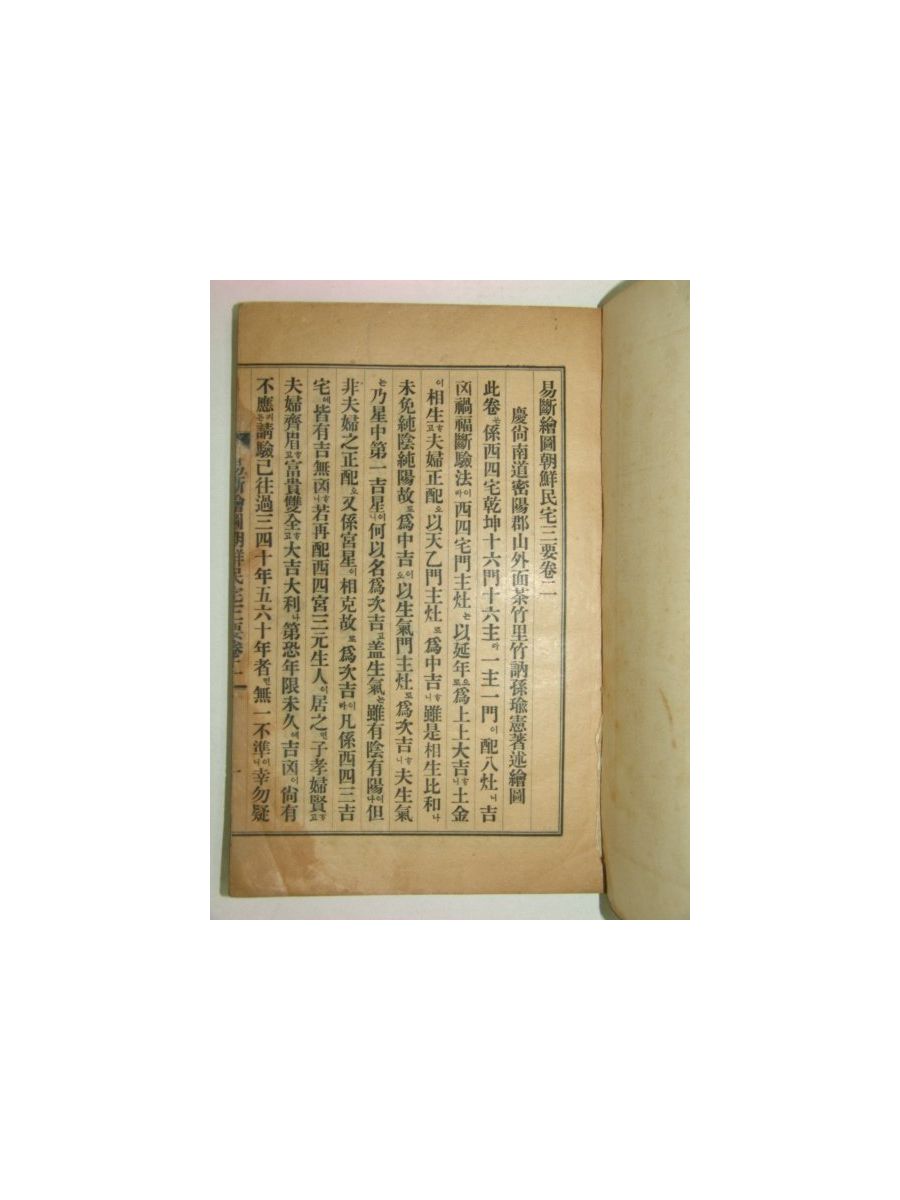 易斷繪圖朝鮮民宅三要卷二
慶尙南道密陽郡山外面茶竹里竹訥孫瑜憲著述繪圖
此卷는係西四宅乾坤十六門十六主라一主一門이配八灶니吉
凶禍福斷驗法이라西四宅門主灶는以延年으로爲上上大吉하니土金
이相生하고夫婦正配오以天乙門主灶로爲中吉하니雖是相生比和나
未免純陰純陽故로爲中吉이오以生氣門主灶로爲次吉하니夫生氣
는乃星中第一吉星이니何以名爲次吉고盖生氣는雖有陰有陽이나但
非夫婦之正配오又係宮星이相克故로爲次吉이라凡係西四三吉
宅에皆有吉無凶하니若再配西四宮三元生人이居之면子孝婦賢하고
夫婦齊眉하고富貴雙全하고大吉大利나第恐年限未久에吉凶이尙有
不應커든請驗已往過三四十年五六十年者면無一不準이니幸勿疑
易斷繪圖朝鮮民宅三要卷二 一